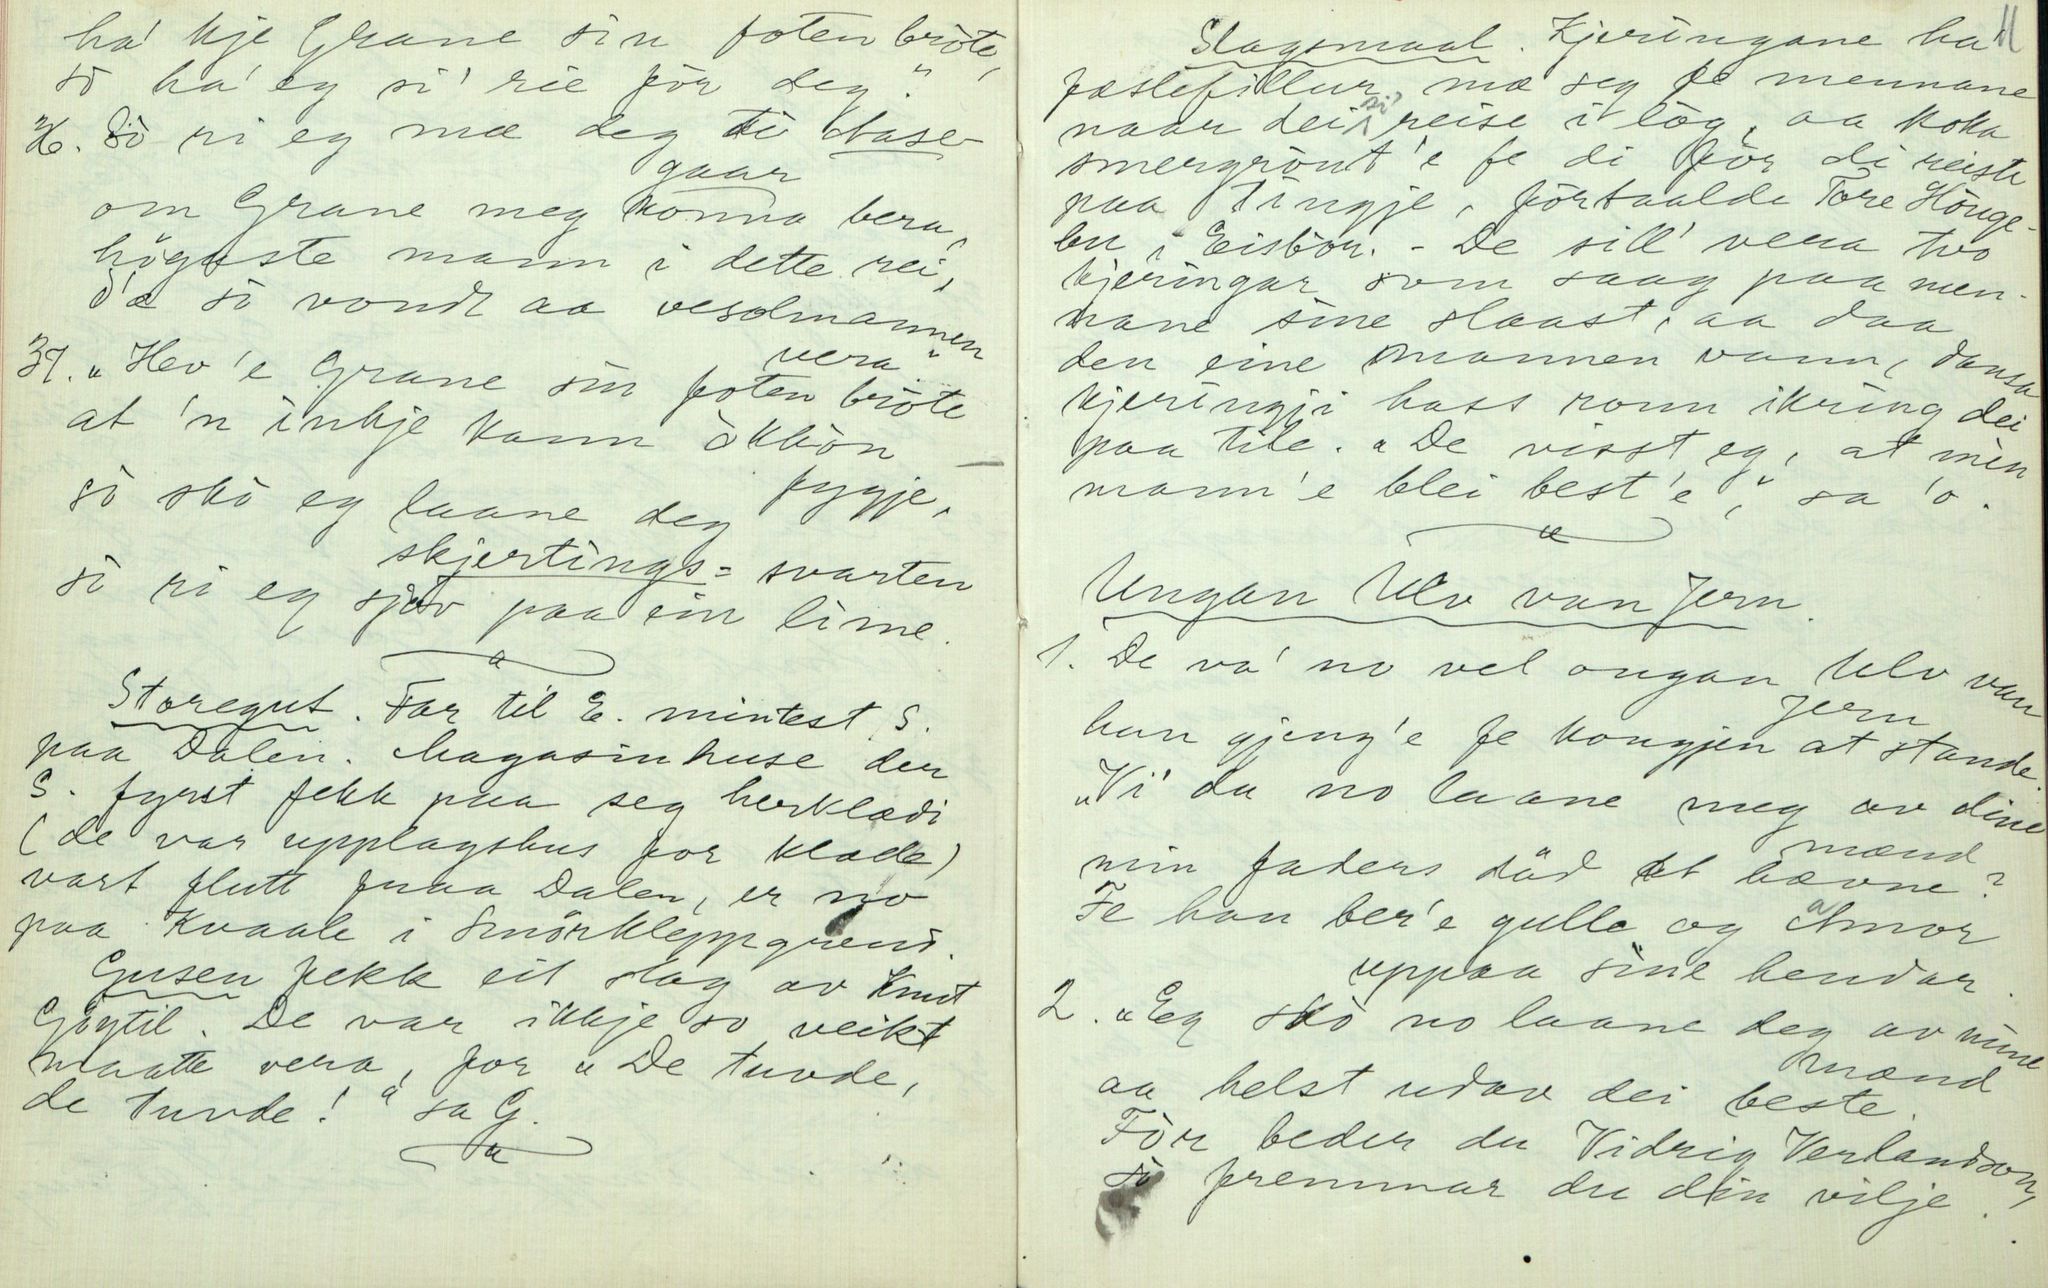 ha' kje Grane sin foten bròte,
sò ha' eg si' rie fòr deg."
36. Sò ri eg mæ deg ti Hase-
gaar
om Grane meg konna bera,
högaste mann i dette rei,
d'æ sò vondt aa vesolmannen
vera."
37. "Hev 'e Grane sin foten bròte
at 'n inkje kann òkkòn
fygje,
sò skò eg laane deg
skjertings-svarten
sò ri eg sjøv paa ein lime.
Storegut. Far til E. mintest S.
paa Dalen. Magasinhuse der
S. fyrst fekk paa seg herklædi
(de var upplagshus for klæde)
vart flutt fraa Dalen, er no
paa Kvaale i Smörkleppgrend.
Gusen fekk eit slag av Knut
Gjøytil. De var ikkje so veikt
maatte vera, for "De tuvde,
de tuvde!" sa G.
11
Slagsmaal. Kjeringane ha'
fæslefillur mæ seg fe mennane
naar dei si' reise i lòg, aa koka
smergròut'e fe di fòr di reiste
paa tingje, fòrtaalde Tore Hòuge-
bu, Eisbòr. - De sill' vera tvo
kjeringar som saag paa men-
nane sine slaast, aa daa
den eine mannen vann, dansa
kjeringji hass ronn ikring dei
paa tile. "De visst eg, at min
mann'e blei best'e," sa 'o.
Ungan Ulv van Jern.
1. De va' no vel ongan Ulv van
Jern
han gjeng'e fe kongjen at stande.
"Vi' du no laane meg av dine
mænd
min faders död at hævne?
Fe han ber'e gulle og amor
uppaa sine hendar.
2. "Eg skò no laane deg av mine
mænd
aa helst udav dei beste.
Fòr beder du Vidrig Verlandson,
sò fremmar du din vilje.